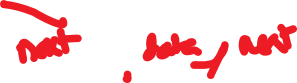 next , data / next